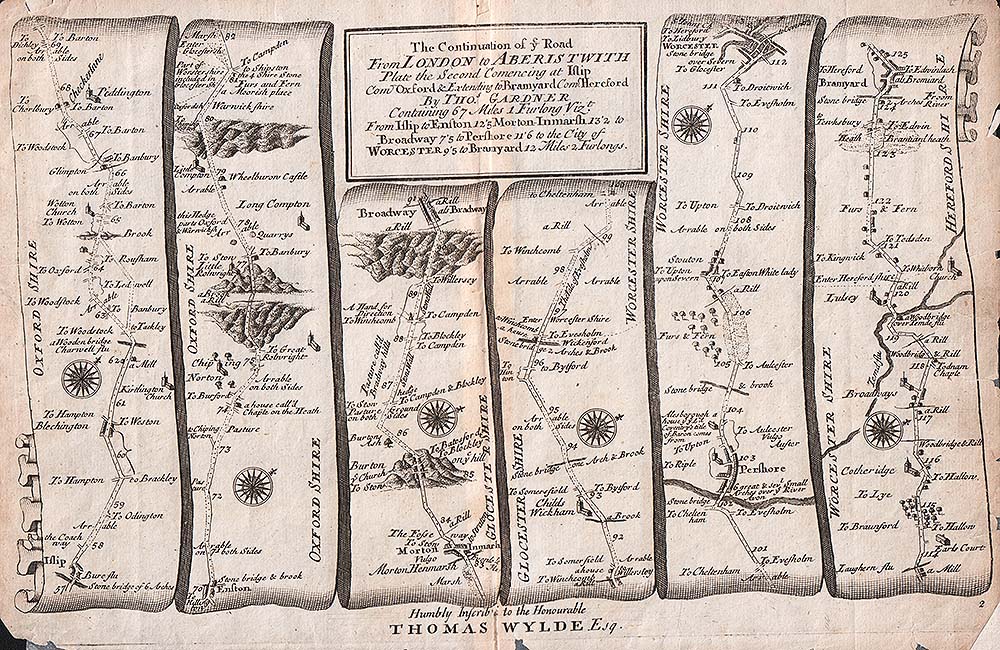 The Continuation of yͤ Road
From LONDON to ABERISTWITH
Plate the Second Comencing at Islip
Comͭ Oxford & Extending to Bramyard Comͭ Hereford
By THOˢ. GARDNER
Containing 67 Miles 1 Furlong Vizᵗ.
From Islip to Enston 12'5 Morton-Inmarsh 13'2 to
Broadway 7'5 to Pershore 11'6 to the City of
WORCESTER 9'5 to Bramyard 12 Miles 2 Furlongs.
To Barton
To Dichley
Arrable
on both Sides
69
68
Peddington
To Charlbury
To Barton
67
To Barton
To Woodstock
To Banbury
Glimpton
66
Arrable
on both Sides
To Barton
Wotton
Church
To Wotton
65
Brook
OXFORD SHIRE
To Rousham
To Oxford
64
To Ledwell
To Woodstock
63
To Banbury
To Woodstock
To Tackley
a Wooden bridge
Charwell flu
62
a Mill
Kirtlington
Church
61
To Hampton
Blechington
To Weston
60
To Hampton
to Brackley
59
To Odington
Arrable
the Coach
way
58
Islip
Bure flu
57
Stone bridge of 6 Arches
Marsh
82
Enter
Glocestersh
To Campden
To Shipston
the 4 Shire Stone
Furs and Fern
a Moorish place
Part of
Worstershire
included in
Glocestersh
Warwick shire
80
Little
Compton
79
Wheelburow Castle
Arrable
Long Compton
this Hedge
parts Oxford
& Warwick
78
Arr
able
Quarrys
To Banbury
To Stow
Little
Rolwright
OXFORD SHIRE
To Great
Rolwright
Chiping
Norton
75
Arrable
on both Sides
To Burford
a house call'd
Chaple on the Heath
74
to Chiping
Norton
Pasture
73
Pas
ture
72
OXFORD SHIRE
Arrable
on both Sides
70
Stone bridge & brook
Enston
91
a Rill
Broadway
als Bradway
a Rill
To Willersey
89
A Hand for
Direction
To Winchcomb
To Campden
88
To Blockley
To Campden
Pasture call'd
Broadway hill
Small Hill
87
To Stow
Pasture
on both Sides
To Campden & Blockley
86
Burton
To Batesford
To Blockley
on yͤ hill
Burton
Church
To Stow
85
GLOCESTER SHIRE
84
a Rill
The Fosse way
To Stow
Morton
Vulgo
Inmarsh
Morton Henmarsh
Marsh
To Cheltenham
Arrable
a Rill
99
To Winchcomb
98
Arrable
Arrable
97
Enter
Worcester shire
To Evesholm
Wickenford
2 Arches & Brook
WORCESTER SHIRE
96
to Byford
95
Arrable
on both Sides
94
Stone bridge
one Arch & Brook
93
To Somersfield
To Byford
Childs
Wickham
a Brook
GLOCESTER SHIRE
92
To Somersfield
Arrable
a house
To Winchcomb
Willersley
To Hereford
To Lidbury
WORCESTER
Stone bridge
over Severn
To Glocester
112
111
To Droitwich
To Evesholm
WORCESTER SHIRE
110
109
To Upton
To Droitwich
108
Arrable
on both Sides
Stouton
To Upton
upon Severn
107
To Easton White lady
a Rill
106
Furs & Fern
105
To Aulcester
Stone bridge
& brook
104
Alsborough a
house
To Aulcester
Vulgo
Auster
To Upton
103
To Riple
Pershore
6 great & sevˡ. Small
Arches over yͤ River
Avon
Stone bridge
To Chelten
ham
To Evesholm
101
To Evesholm
To Cheltenham
Arrable
125
To Hereford
To Edwinlach
Bramyard
als Bromiard
Stone bridge
2 Arches
From River
124
to Tewksbury
To Edwin
Heath
Brantiard heath
123
122
Furs & Fern
To Tedsden
121
To Kingwick
To Whitborn
Church
Enter Hereford shire
a Rill
120
Lulsey
HEREFORD SHIRE
a Woodbridge
over Temde flu
119
a Rill
Woodbridg
118
Todnam
Chaple
Broadways
a Rill
117
Temde flu
WORCESTER SHIRE
Woodbridge & Rill
116
Cotheridge
To Hallow
To Lye
To Braunford
To Hallow
Earls Court
Laughern flu
a Mill
2
Humbly Inscrib'd to the Honourable
THOMAS WYLDE Esq.